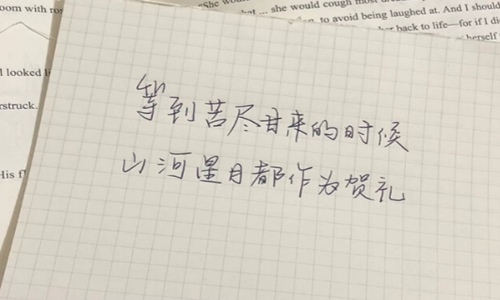 oom with ro
"She wo
she would cough mo
to avoid being laughed at. And I should
back to life—for if I di
herself
I looked l
rstruck.
His f
等到苦尽甘来的时候
山河星月都作为贺礼